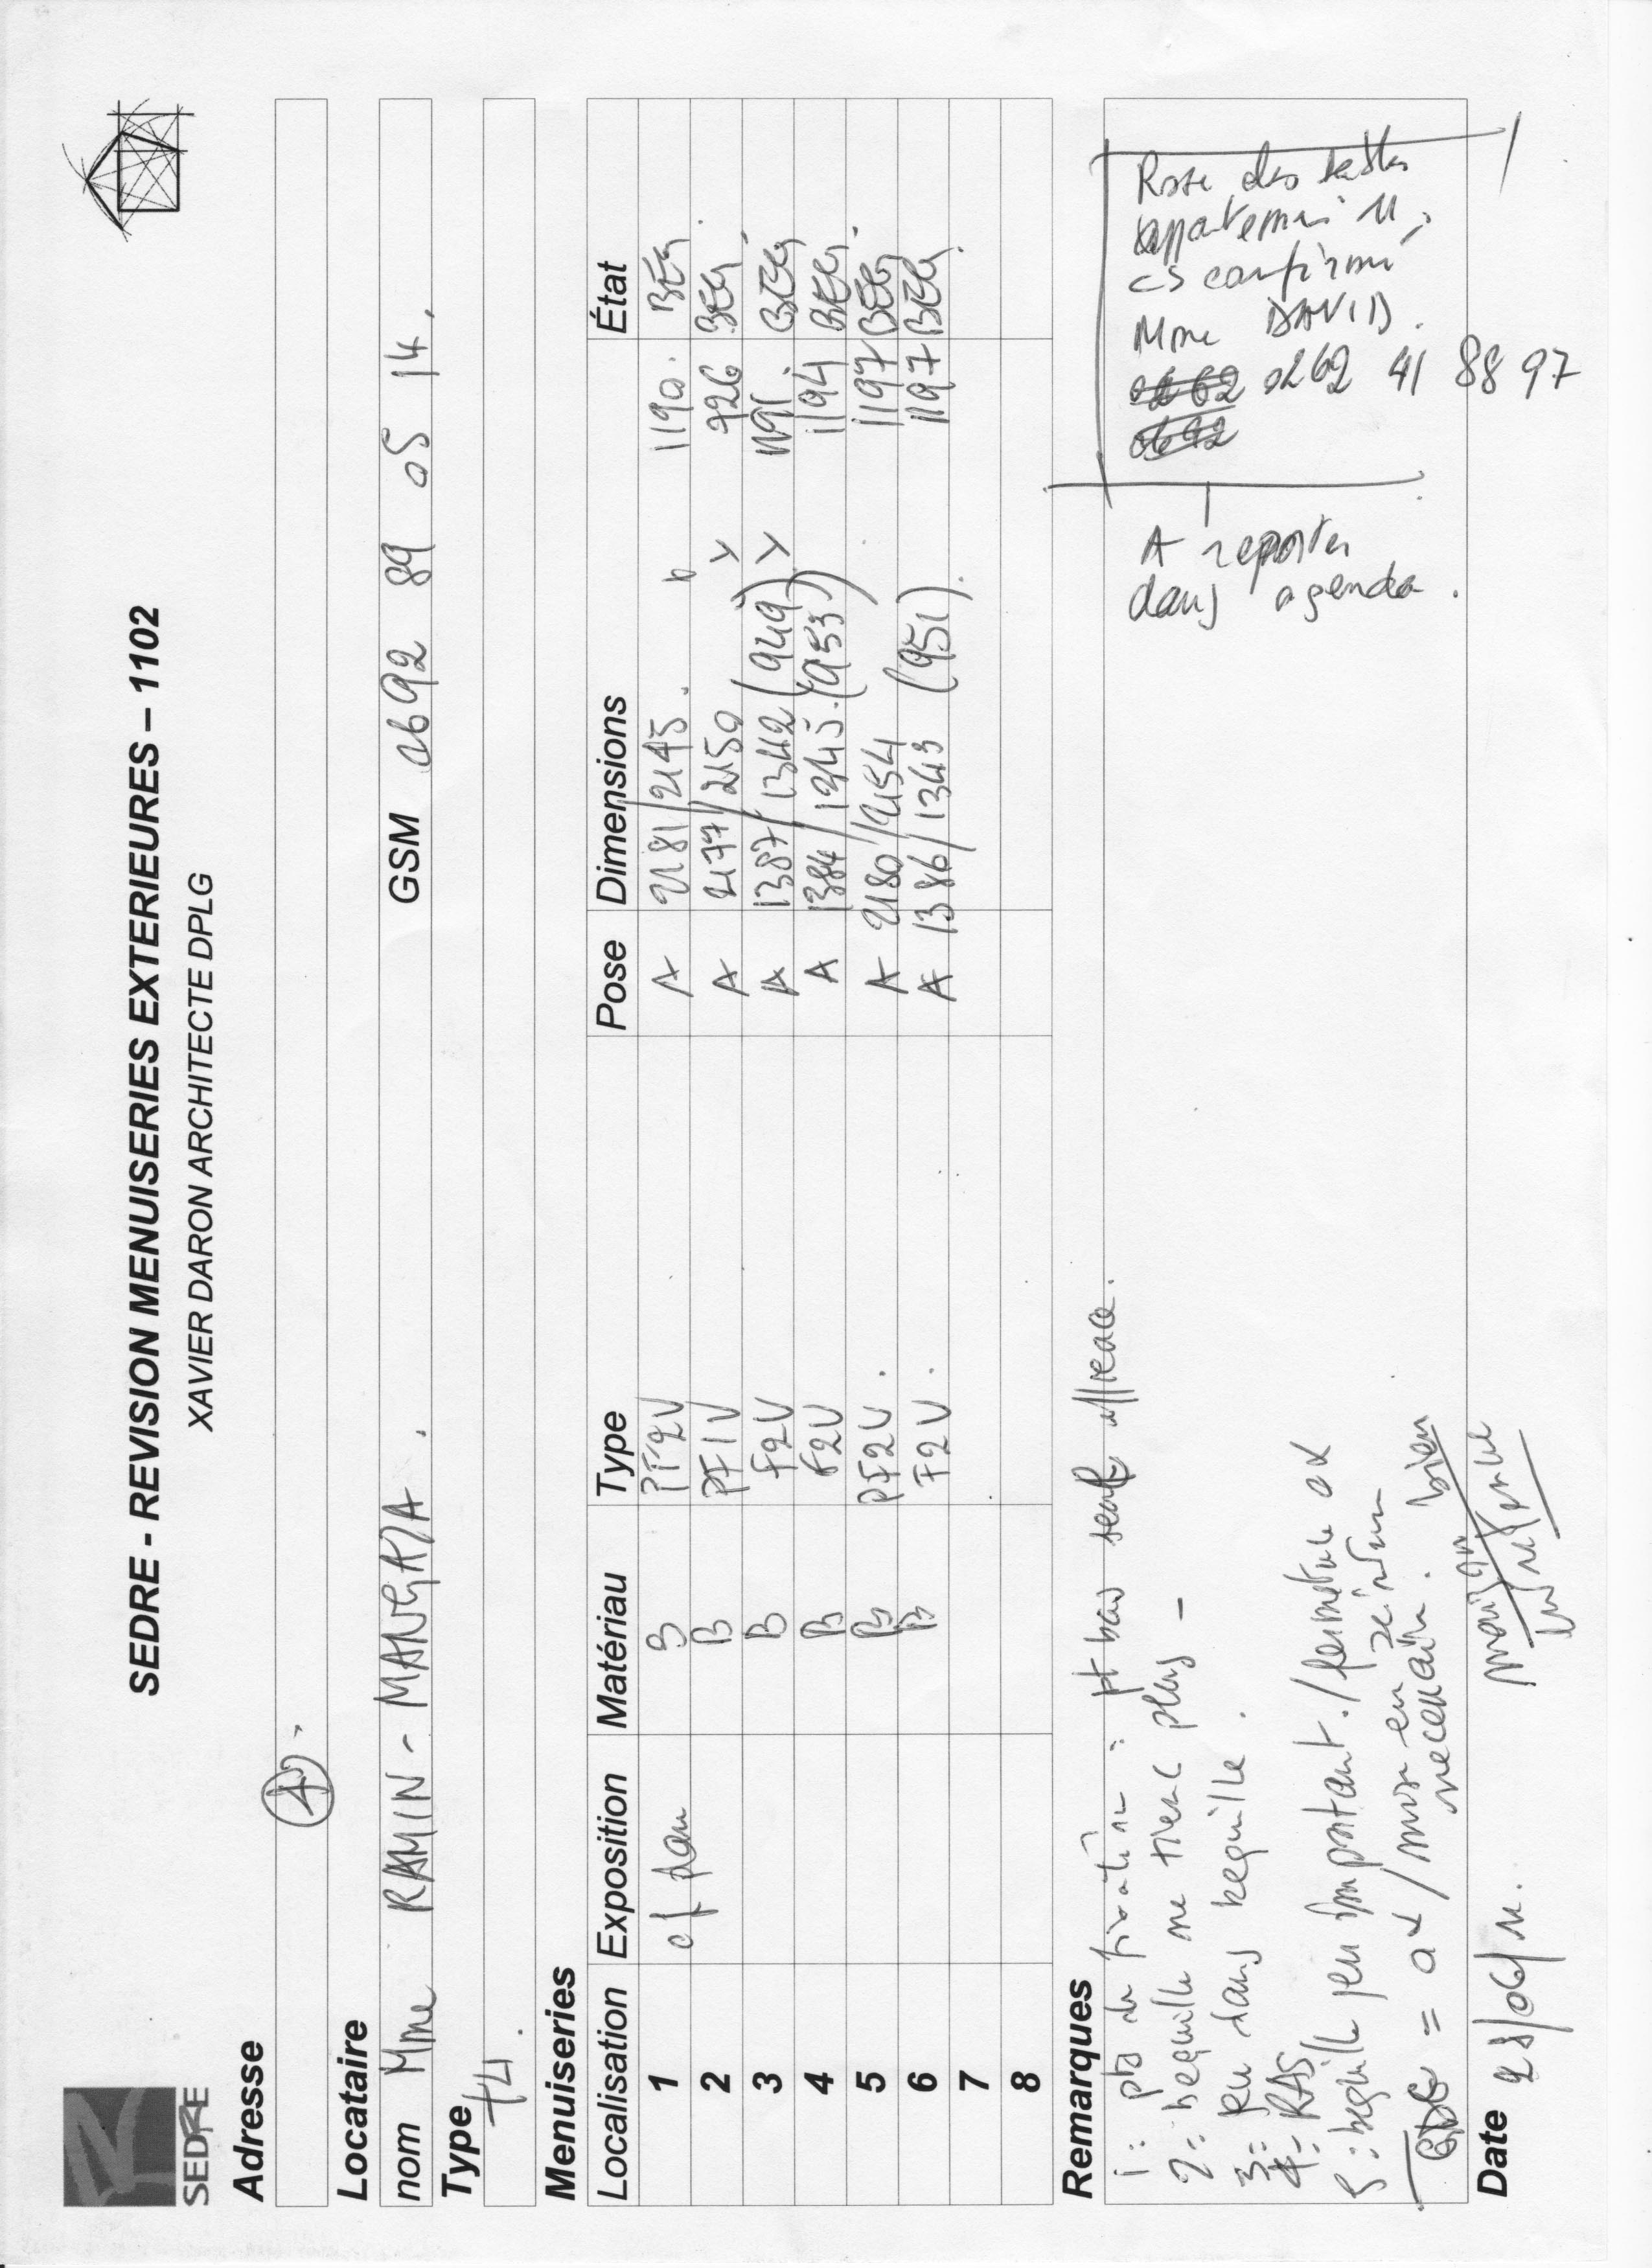 SEDRE - REVISION MENUISERIES EXTERIEURES – 1102
XAVIER DARON ARCHITECTE DPLG
SEDRE
Adresse
Locataire
nom Mme RAMIN - MANGATA. GSM 0692 89 05 14.
Type
T4.
Menuiseries
Localisation Exposition Matériau Type Pose Dimensions État
1 cf plan B PF2V A 2181/2145. 1190. BEG
2 B PF1V A 2177/2150 926 BEG.
3 B F2V A 1387/1342 (949) 1191. BEG
4 B F2V A 1384/1345. (953) 1194 BEG.
5 B PF2V. A 2180/2154 1197 BEG
6 B F2V. A 1386/1343 (951). 1197 BEG.
7
8
Remarques
1: pb de fixation : pt bas seul efficace.
2: bequille ne tient plus -
3: jeu dans bequille.
4: RAS
5: bequille jeu important. / fermeture ok
= ok / mise en
necessaire. bien
appartement 11,
cs confirmé
Mme DAVID.
0262 41 88 97
A reporter
dans agenda.
Date 28/06/11.